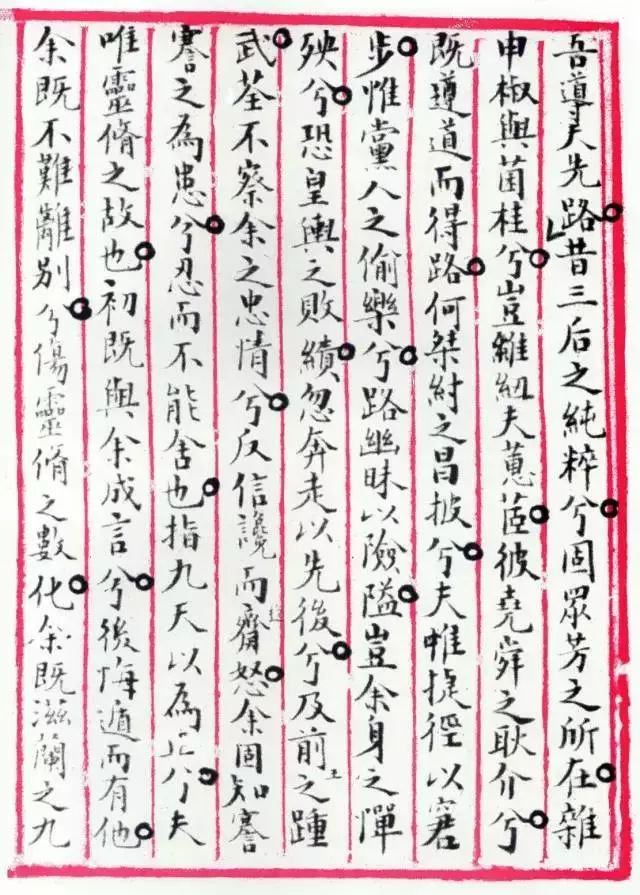 吾導夫先路昔三后之純粹兮固眾芳之所在雜
申椒與菌桂兮豈維紐夫蕙茝彼堯舜之耿介兮
既遵道而得路何桀紂之昌披兮夫唯捷徑以窘
步惟黨人之偷樂兮路幽昧以險隘豈余身之憚
殃兮恐皇輿之敗績忽奔走以先後兮及前王之踵
武荃不察余之忠情兮反信讒而齌怒余固知謇
謇之為患兮忍而不能舍也指九天以為正兮夫
唯靈脩之故也初既與余成言兮後悔遁而有他
余既不難離別兮傷靈脩之數化余既滋蘭之九